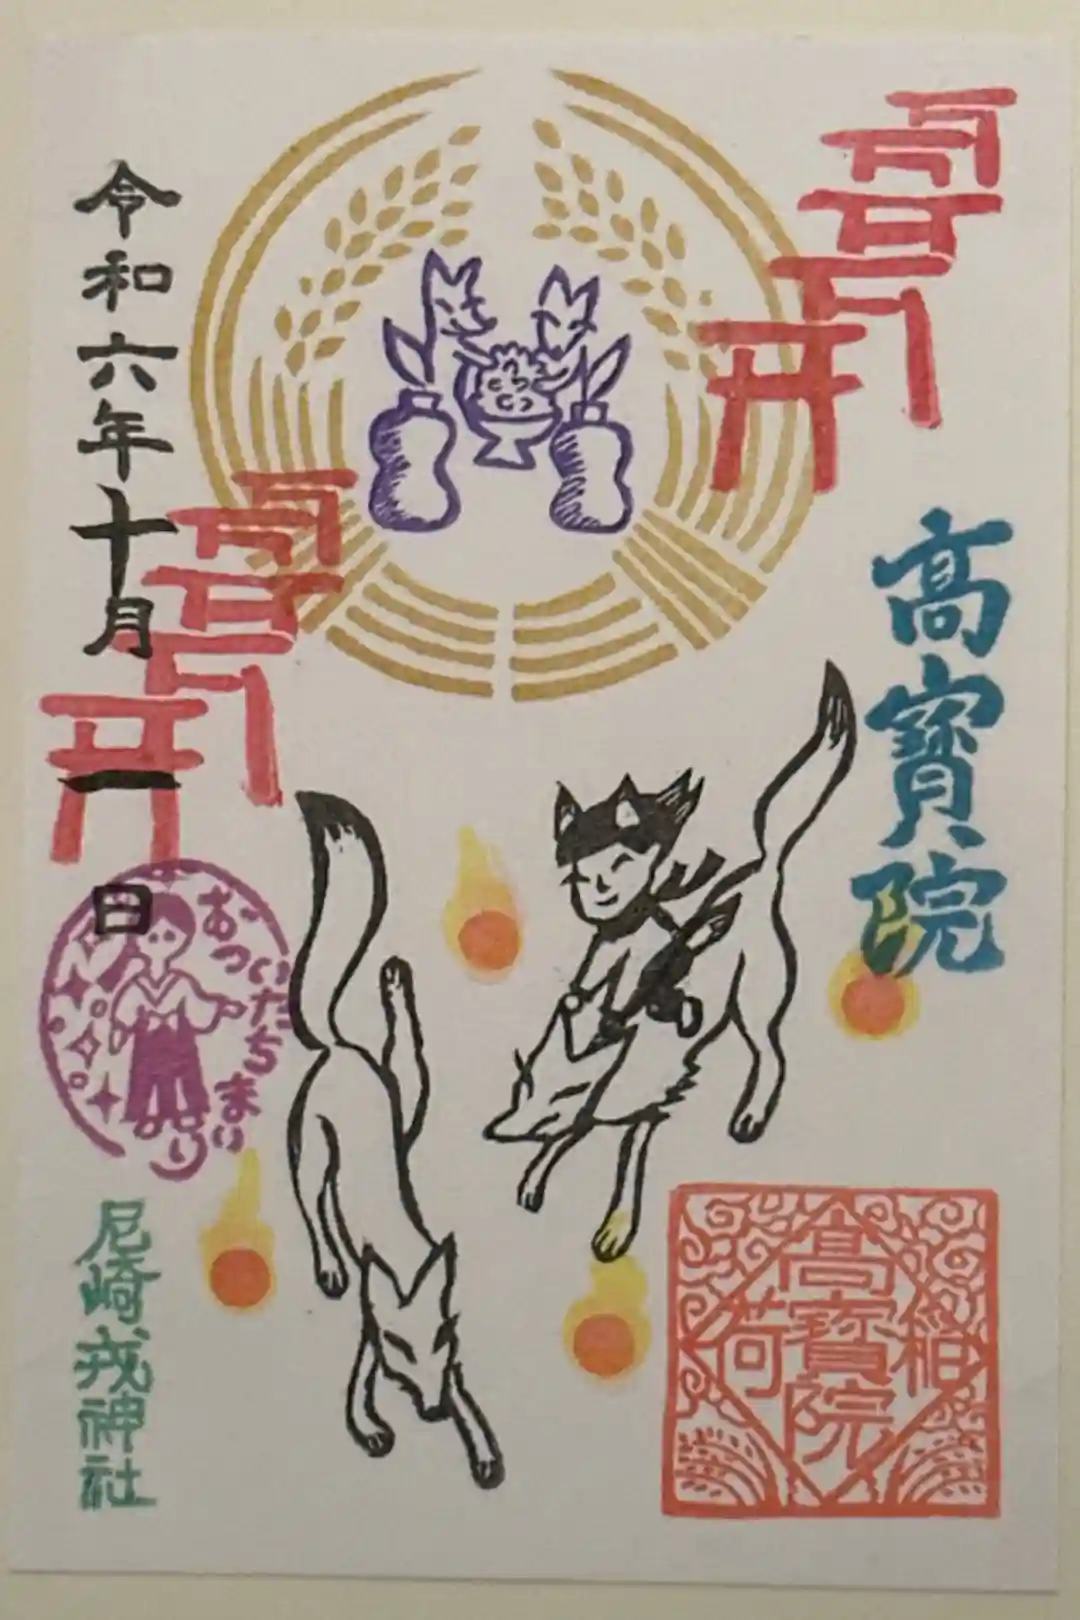 高寳院
令和六年十月一日
おついたちまいり
尼崎戎神社
稲荷
高寳院